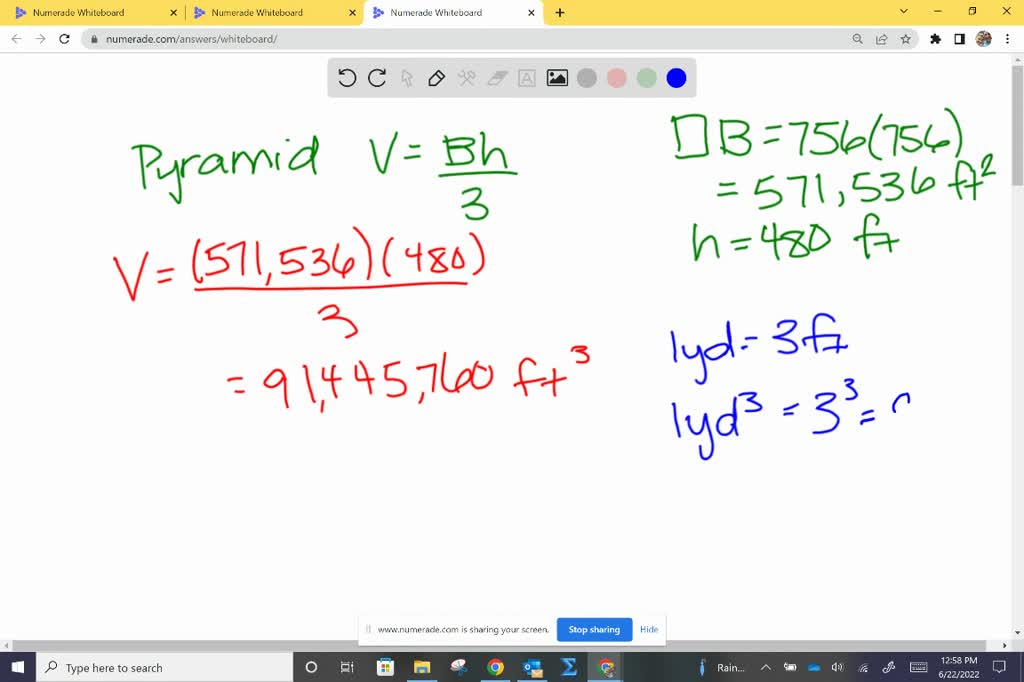 Numerade Whiteboard
Numerade Whiteboard
Numerade Whiteboard
numerade.com/answers/whiteboard/
A
Pyramid V = Bh/3
B = 756(756)
= 571,536 ft²
h = 480 ft
V = (571,536)(480)/3
= 91,445,760 ft³
1yd = 3ft
1yd³ = 3³ =
www.numerade.com is sharing your screen.
Stop sharing
Hide
Type here to search
Rain...
12:58 PM
6/22/2022